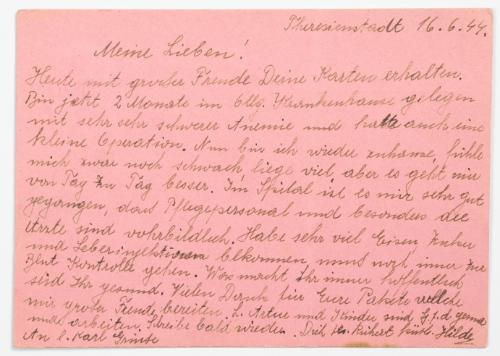 Theresienstadt 16.6.44.
Meine Lieben!
Heute mit großer Freude Deine Karten erhalten.
Bin jetzt 2 Monate im Allg. Krankenhause gelegen
mit sehr sehr schwerer Anemie und hatte auch eine
kleine Operation. Nun bin ich wieder zuhause, fühle
mich zwar noch schwach liege viel, aber es geht mir
von Tag zu Tag besser. Im Spital ist es mir sehr gut
gegangen, das Pflegepersonal und besonders die
Ärzte sind vorbildlich. Habe sehr viel Eisen
und Leberinjektionen bekommen, muss noch immer zur
Blut Kontrolle gehen. Was macht Ihr immer hoffentlich
seid Ihr gesund. Vielen Dank für Eure Pakete welche
mir große Freude bereiten. Artur und Kinder sind gesund
und arbeiten, Schreibe bald wieder. Dich küsst Hilde
An Karl